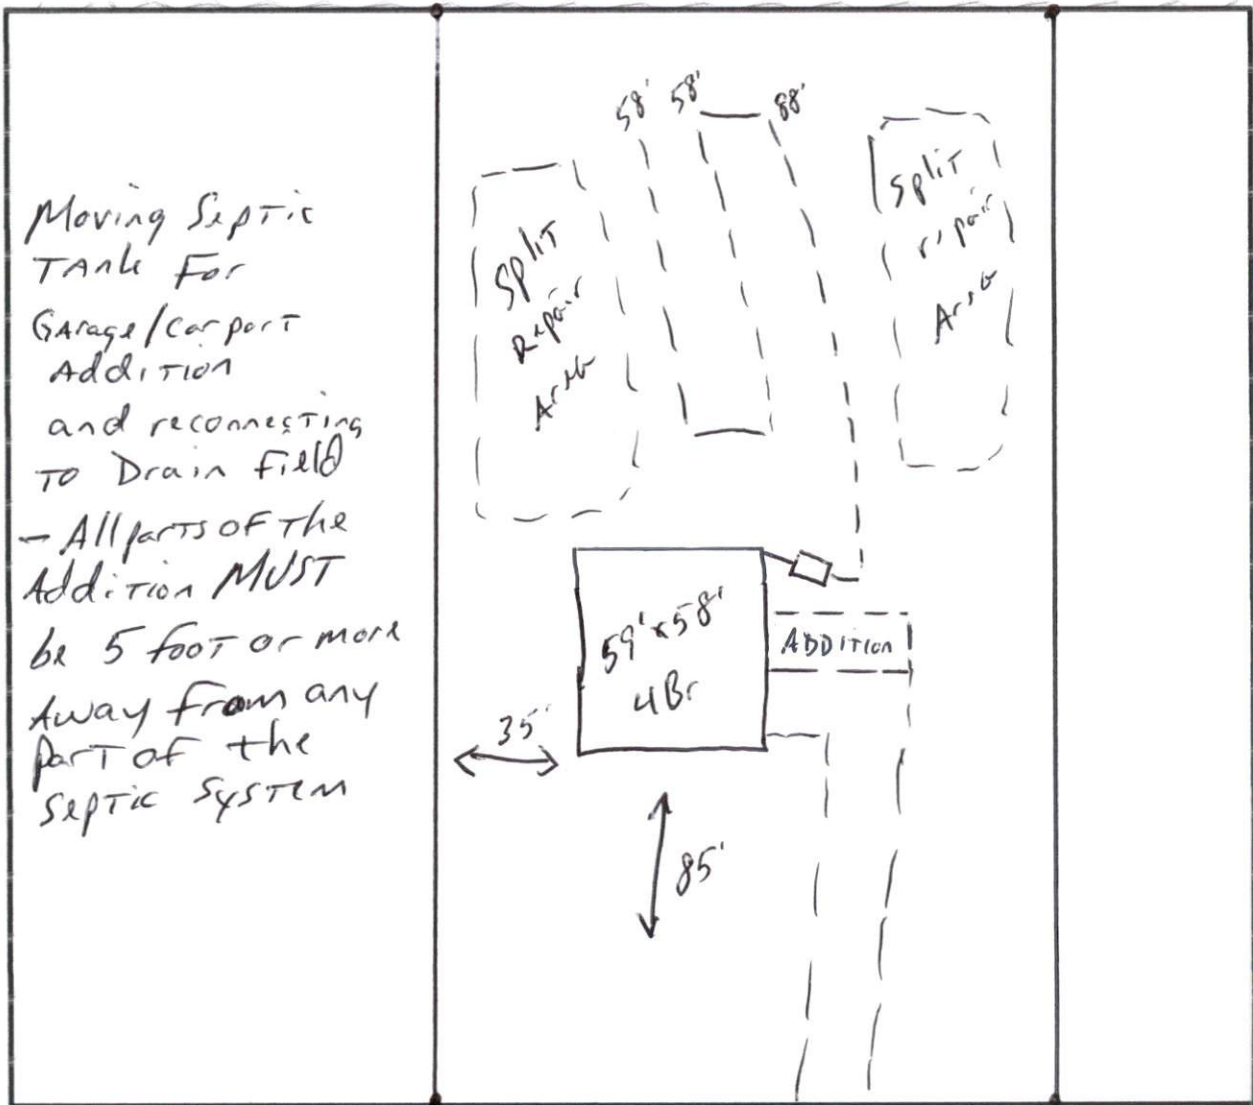 Moving Septic
TANK For
GArage/Carport
Addition
and reconnecting
TO Drain Field
- All parts of The
Addition MUST
be 5 foot or more
Away from any
part of the
Septic System
58' 58' 88'
Split
Repair
Area
Split
repair
Area
59'x58'
4Br
ADDITION
35'
85'